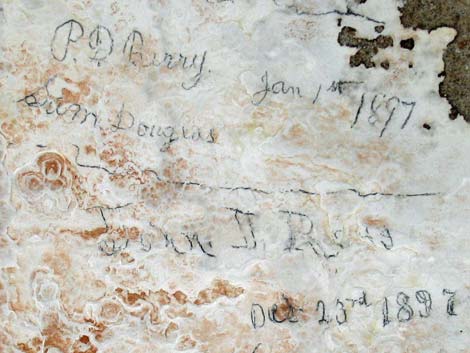 P.D. Berry.
Jan 1st 1897
Sam Douglas
John I. Ross
Oct 23rd 1897